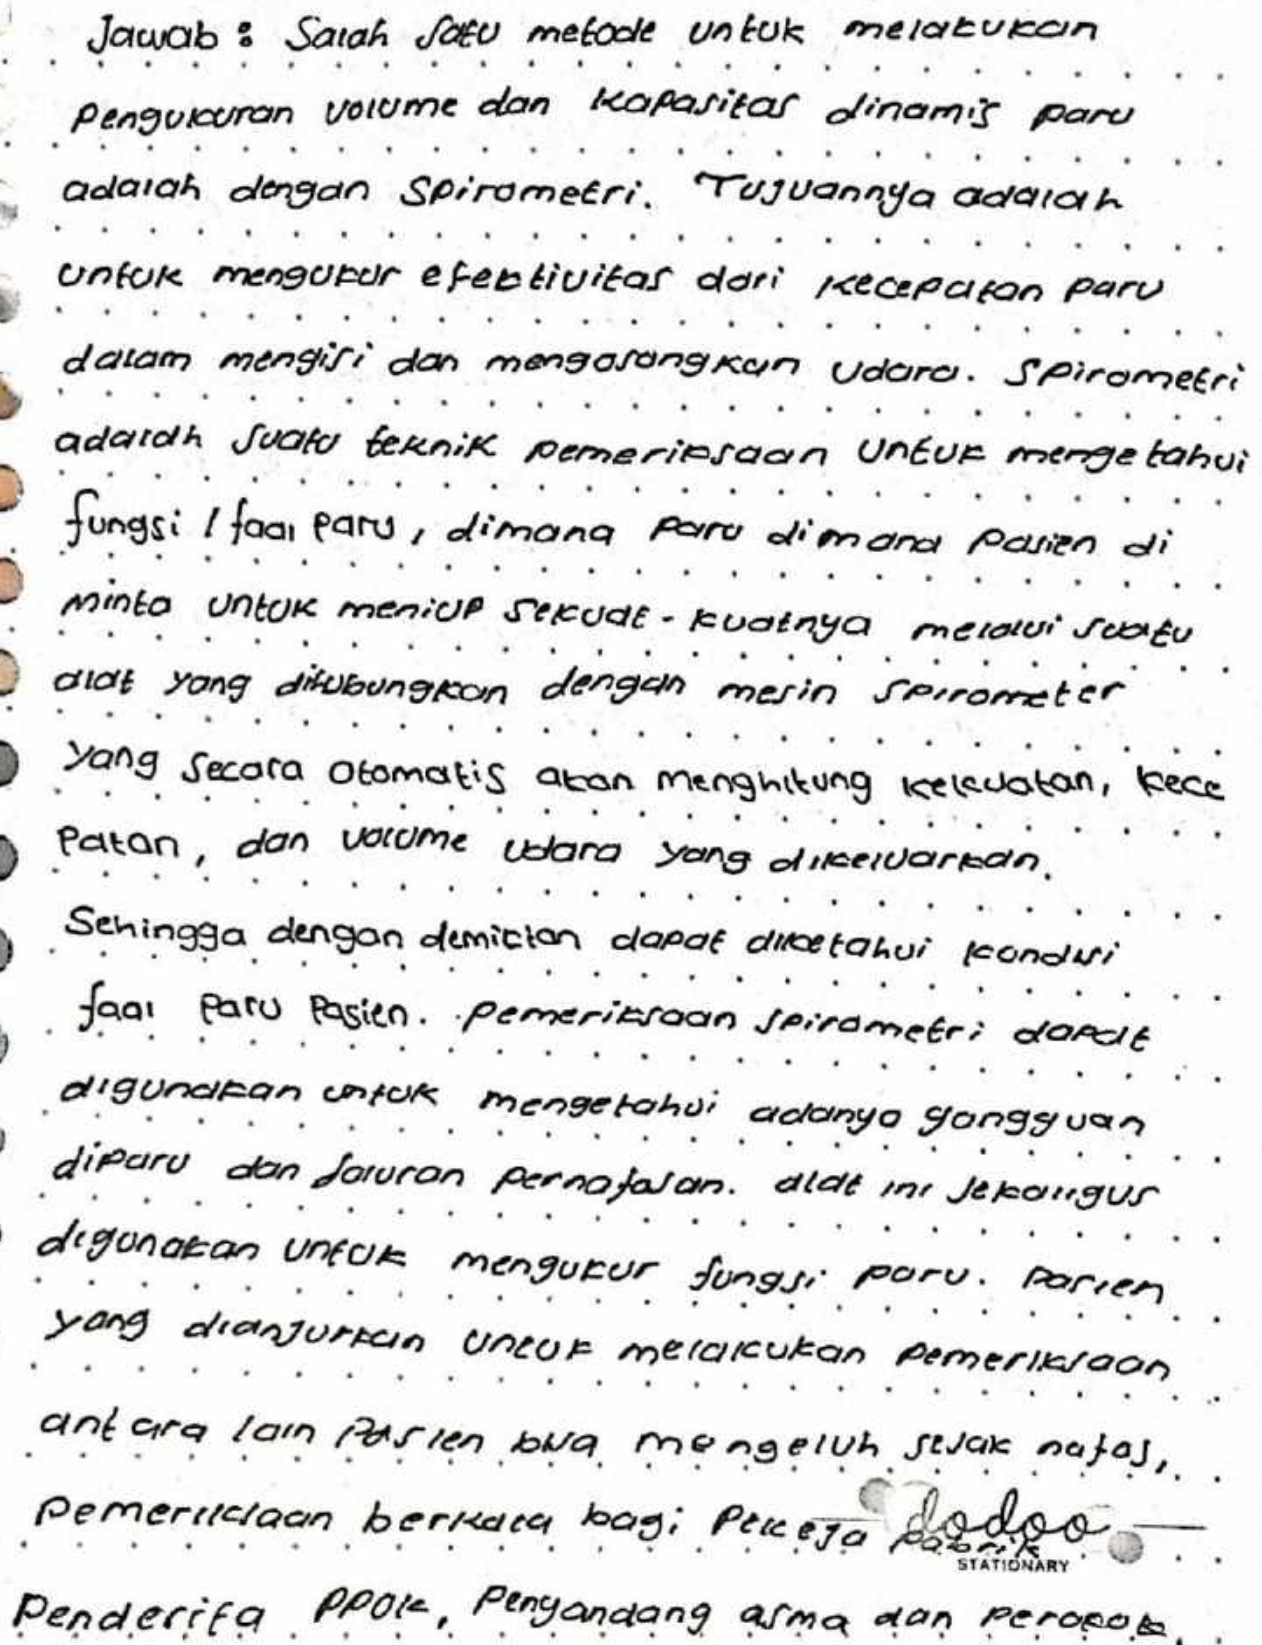 Jawab : Salah satu metode untuk melakukan
pengukuran volume dan kapasitas dinamis paru
adalah dengan spirometri. Tujuannya adalah
untuk mengukur efektivitas dari kecepatan paru
dalam mengisi dan mengosongkan udara. Spirometri
adalah suatu teknik pemeriksaan untuk mengetahui
fungsi / faal paru, dimana paru dimana pasien di
minta untuk meniup sekuat-kuatnya melalui suatu
alat yang dihubungkan dengan mesin spirometer
yang secara otomatis akan menghitung kekuatan, kece
patan, dan volume udara yang dikeluarkan.
Sehingga dengan demikian dapat diketahui kondisi
faal paru pasien. pemeriksaan spirometri dapat
digunakan untuk mengetahui adanya gangguan
diparu dan saluran pernafasan. alat ini sekaligus
digunakan untuk mengukur fungsi paru. pasien
yang dianjurkan untuk melakukan pemeriksaan
antara lain pasien bila mengeluh sesak nafas,
pemeriksaan berkala bagi pekerja pabrik
dodoo
STATIONARY
penderita PPOK, Penyandang asma dan perokok.